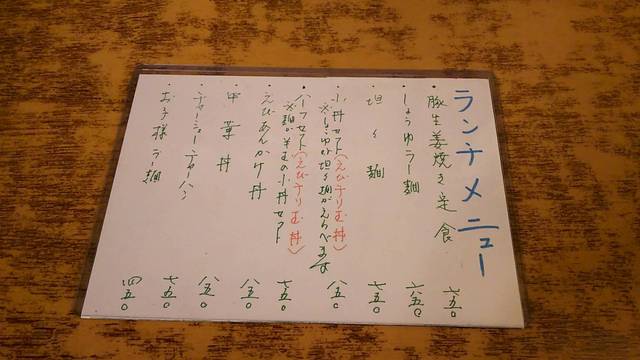 ランチメニュー
・豚生姜焼き定食 七五〇
・しょうゆラー麺 六五〇
・坦々麺 七五〇
・小丼セット(えびチリ玉丼) 八五〇
※しょうゆか坦々麺がえらべます
・ハーフセット(えびチリ玉丼) 七五〇
※麺が半玉の小丼セット
・えびあんかけ丼 八五〇
・中華丼 八五〇
・チャーシューチャーハン 七五〇
・お子様ラー麺 四五〇